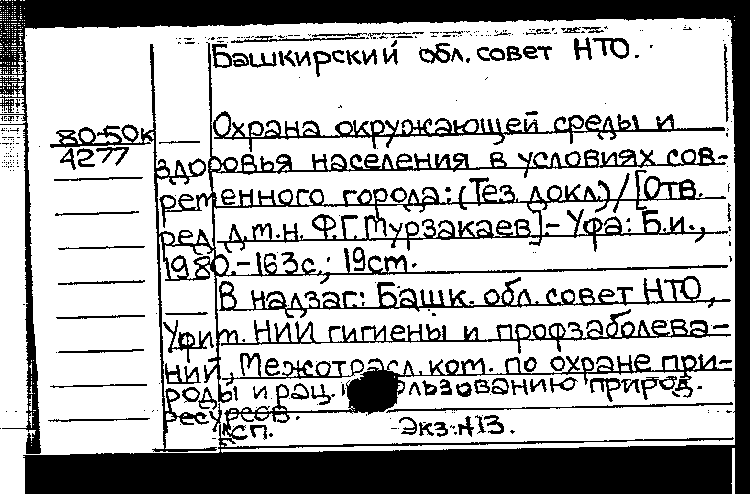 Башкирский обл. совет НТО.
80-50к
4277
Охрана окружающей среды и
здоровья населения в условиях сов-
ременного города: (Тез. докл.) / [Отв.
ред. д.т.н. Ф.Г. Мурзакаев]. - Уфа: Б.и.,
1980. - 163с.; 19см.
В надзаг: Башк. обл. совет НТО,
Уфим. НИИ гигиены и профзаболева-
ний, Межотрасл. ком. по охране при-
роды и рац. использованию природ.
ресурсов.
сп. Экз: N13.